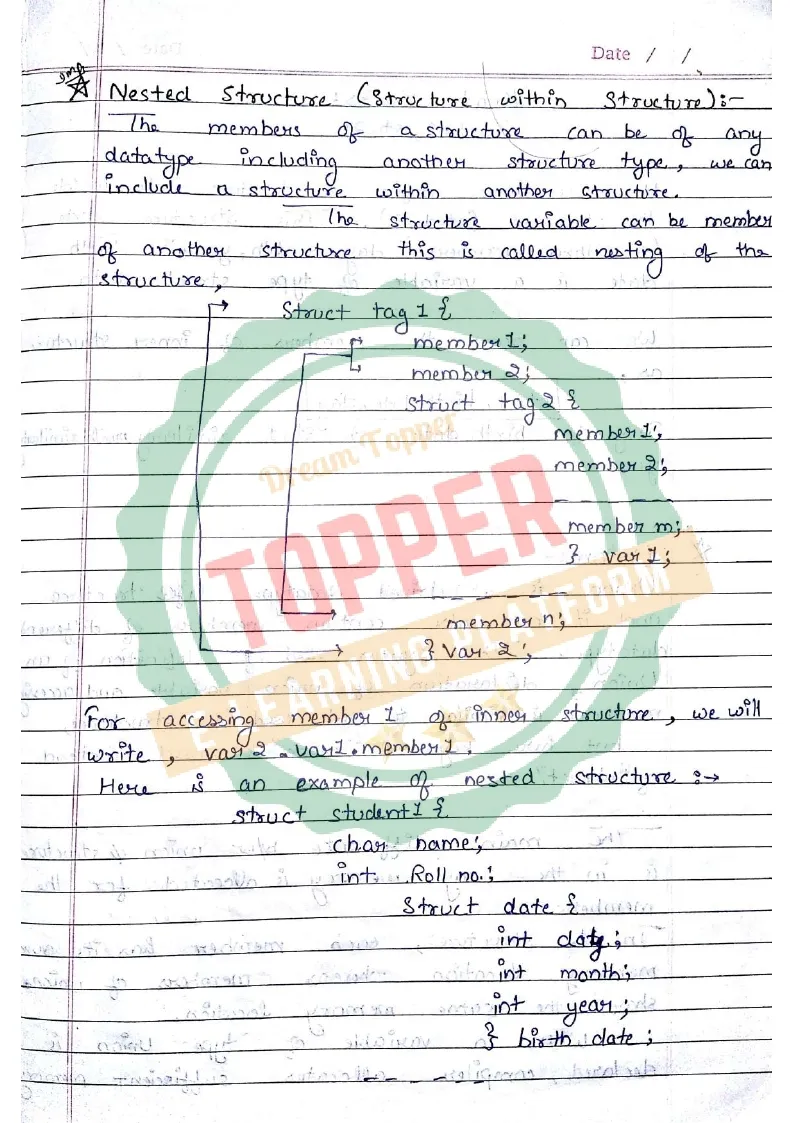 Date / /
Imp
Nested Structure (Structure within Structure):-
The members of a structure can be of any
datatype including another structure type, we can
include a structure within another structure.
The structure variable can be member
of another structure this is called nesting of the
structure,
Struct tag 1 {
member 1;
member 2;
struct tag 2 {
member 1;
member 2;
- - - - - -
member m;
} var 1;
- - - - - -
member n;
} var 2;
For accessing member 1 of inner structure, we will
write, var 2 . var1 . member 1.
Here is an example of nested structure :→
struct student1 {
char name;
int Roll no.;
Struct date {
int date;
int month;
int year;
} birth date;
Dream Topper
TOPPER
E-LEARNING PLATFORM